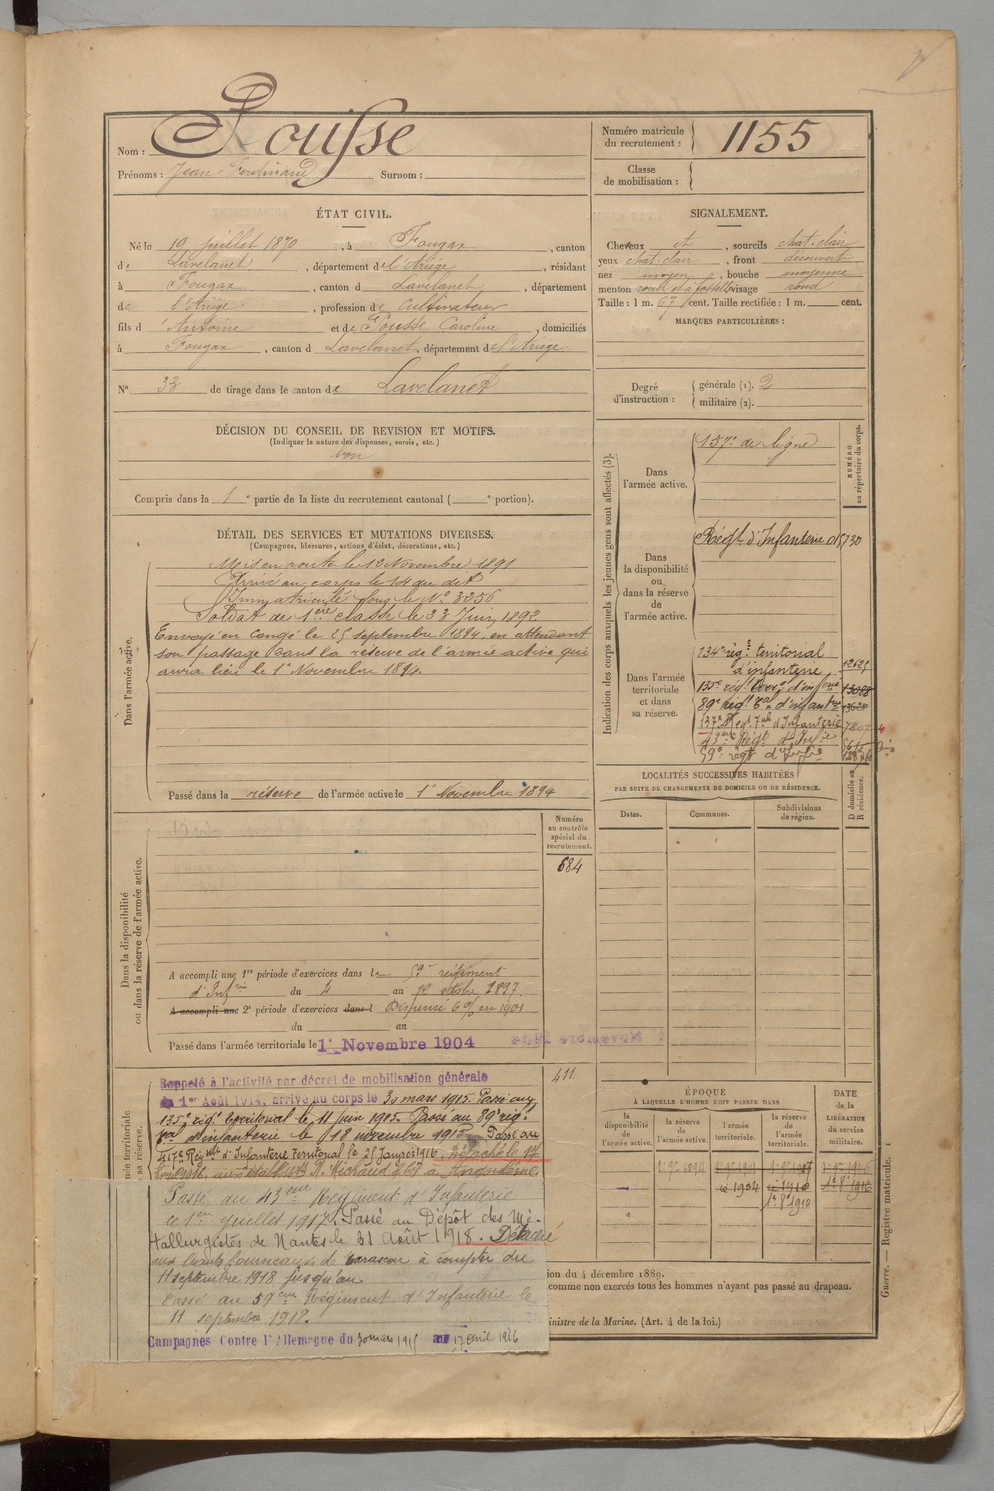 Nom : Pousse
Prénoms : Jean Ferdinand Surnom :
Numéro matricule du recrutement : 1155
Classe de mobilisation :
ÉTAT CIVIL.
Né le 19 juillet 1870, à Fougax, canton
de Lavelanet, département de l'Ariège, résidant
à Fougax, canton d Lavelanet, département
de l'Ariège, profession de cultivateur
fils d Antoine et de Pousse Caroline, domiciliés
à Fougax, canton d Lavelanet, département de l'Ariège
N° 33 de tirage dans le canton de Lavelanet
SIGNALEMENT.
Cheveux et, sourcils chat-clair
yeux chat-clair, front découvert
nez moyen, bouche moyenne
menton rond et à fossette visage rond
Taille : 1 m. 67 cent. Taille rectifiée : 1 m. cent.
MARQUES PARTICULIÈRES :
Degré d'instruction : générale (1). 2
militaire (2).
DÉCISION DU CONSEIL DE REVISION ET MOTIFS.
(Indiquer la nature des dispenses, sursis, etc.)
bon
Compris dans la 1e partie de la liste du recrutement cantonal ( e portion).
DÉTAIL DES SERVICES ET MUTATIONS DIVERSES.
(Campagnes, blessures, actions d'éclat, décorations, etc.)
Dans l'armée active.
Mis en route le 12 Novembre 1891
Arrivé au corps le 14 du dit
Immatriculé sous le N° 3256
Soldat de 1ère classe le 23 Juin 1892
Envoyé en congé le 25 septembre 1894, en attendant
son passage dans la réserve de l'armée active qui
aura lieu le 1er Novembre 1894.
Passé dans la réserve de l'armée active le 1er Novembre 1894
Indication des corps auxquels les jeunes gens sont affectés (3).
NUMÉRO au répertoire du corps.
Dans l'armée active. 157e de ligne
Dans la disponibilité ou dans la réserve de l'armée active.
Régt d'Infanterie 5730
Dans l'armée territoriale et dans sa réserve.
134e régt territorial
d'infanterie 12625
135e régt terr. d'infrie 13088
89e régt tal d'infantrie 13624
137e Régt Tal d'Infanterie 7807
43ème Régt d'Infie
59e régt d'Infie
LOCALITÉS SUCCESSIVES HABITÉES
PAR SUITE DE CHANGEMENTS DE DOMICILE OU DE RÉSIDENCE.
Dates. Communes. Subdivisions de région. D domicile ou R résidence.
Dans la disponibilité ou dans la réserve de l'armée active.
Numéro au contrôle spécial du recrutement.
684
A accompli une 1re période d'exercices dans le 59e régiment
d'Infrie du 4 au octobre 1897.
A accompli une 2e période d'exercices dans l Dispensé en 1901
du au
Passé dans l'armée territoriale le 1er Novembre 1904
411
Rappelé à l'activité par décret de mobilisation générale
du 1er Août 1914, arrivé au corps le 30 mars 1915. Passé au
135e régt territorial le 11 juin 1915. Passé au 89e régt
tal d'infanterie le 18 novembre 1915. Passé au
417e Régimt d'Infanterie Territorial le 25 Janvier 1916. Détaché le 17
avril 1916, aux établissts à Angoulème.
Passé au 43eme Régiment d'Infanterie
le 1er juillet 1917. Passé au Dépôt des Mé-
tallurgistes de Nantes le 31 Août 1918. Détaché
aux hauts fourneaux de Tarascon à compter du
11 septembre 1918 jusqu'au
Passé au 59eme Régiment d'Infanterie le
11 septembre 1918.
Campagnes Contre l'Allemagne du 30 mars 1915 au 17 avril 1916
ÉPOQUE
À LAQUELLE L'HOMME DOIT PASSER DANS
la disponibilité de l'armée active. la réserve de l'armée active. l'armée territoriale. la réserve de l'armée territoriale.
DATE de la LIBÉRATION du service militaire.
1er 9e 1894
le 1904
le 1910
1er 8e 1910
ion du 4 décembre 1889.
comme non exercés tous les hommes n'ayant pas passé au drapeau.
inistre de la Marine. (Art. 4 de la loi.)
Guerre. — Registre matricule.